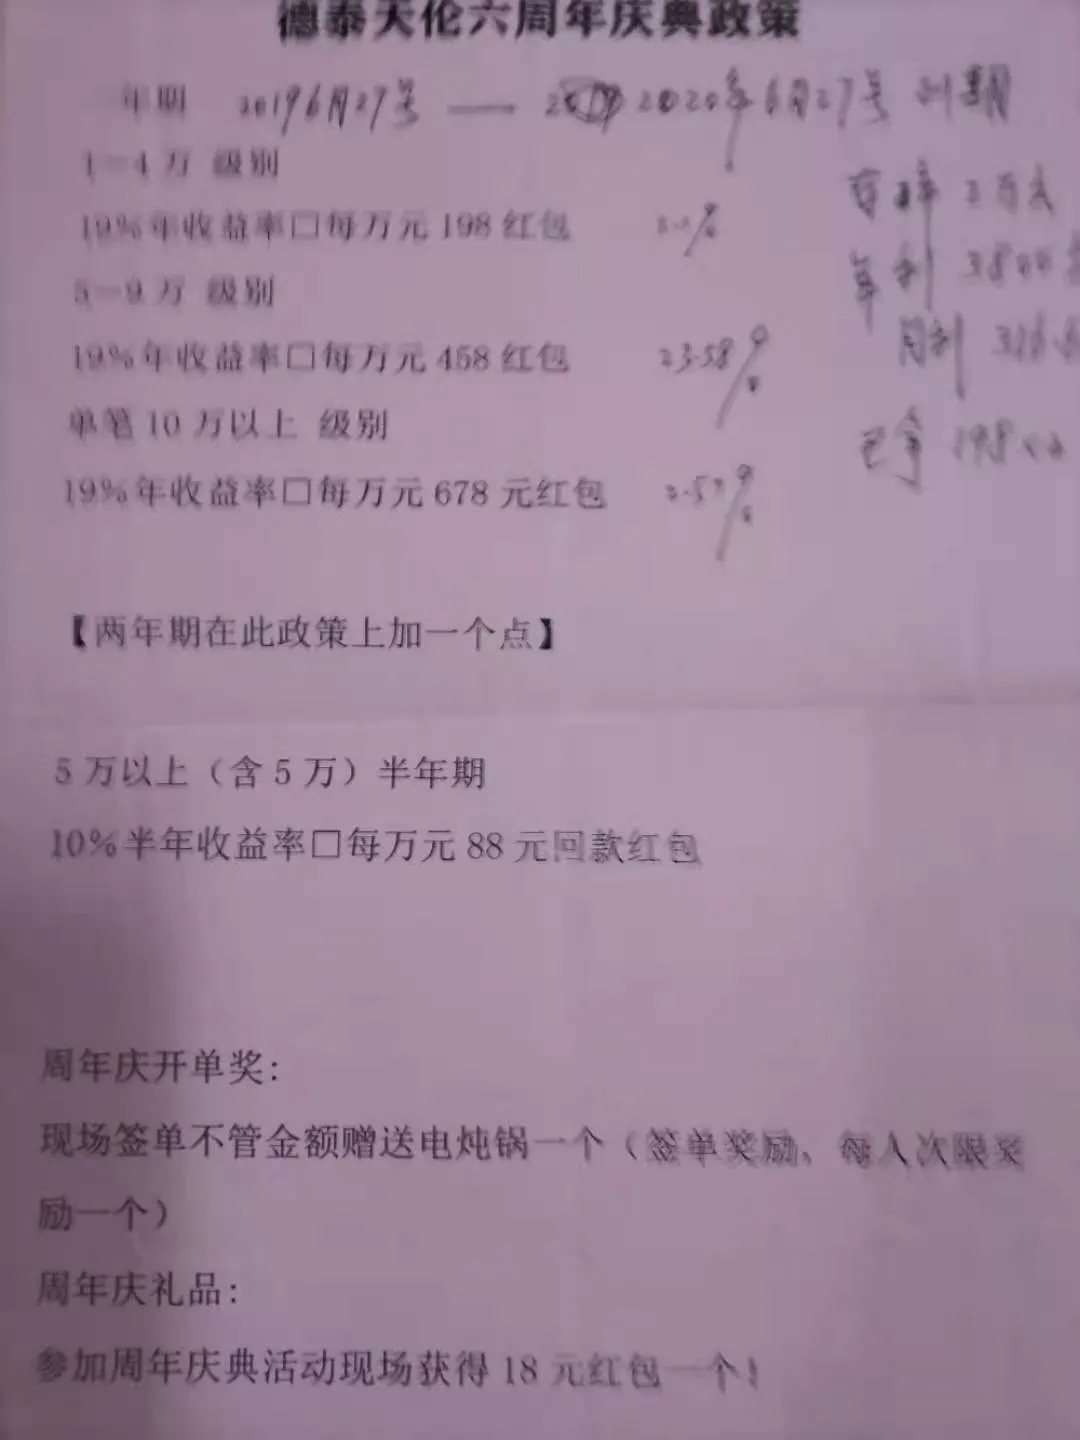 德泰天伦六周年庆典政策
一年期 2019 6月27号 — 2020年6月27号 到期
1-4万 级别
19%年收益率□每万元198红包
5-9万 级别
19%年收益率□每万元458红包 23.58%
单笔10万以上 级别
19%年收益率□每万元678元红包
年利
月利
已拿 198
【两年期在此政策上加一个点】
5万以上（含5万）半年期
10%半年收益率□每万元88元回款红包
周年庆开单奖:
现场签单不管金额赠送电炖锅一个（签单奖励、每人次限奖
励一个）
周年庆礼品:
参加周年庆典活动现场获得18元红包一个！